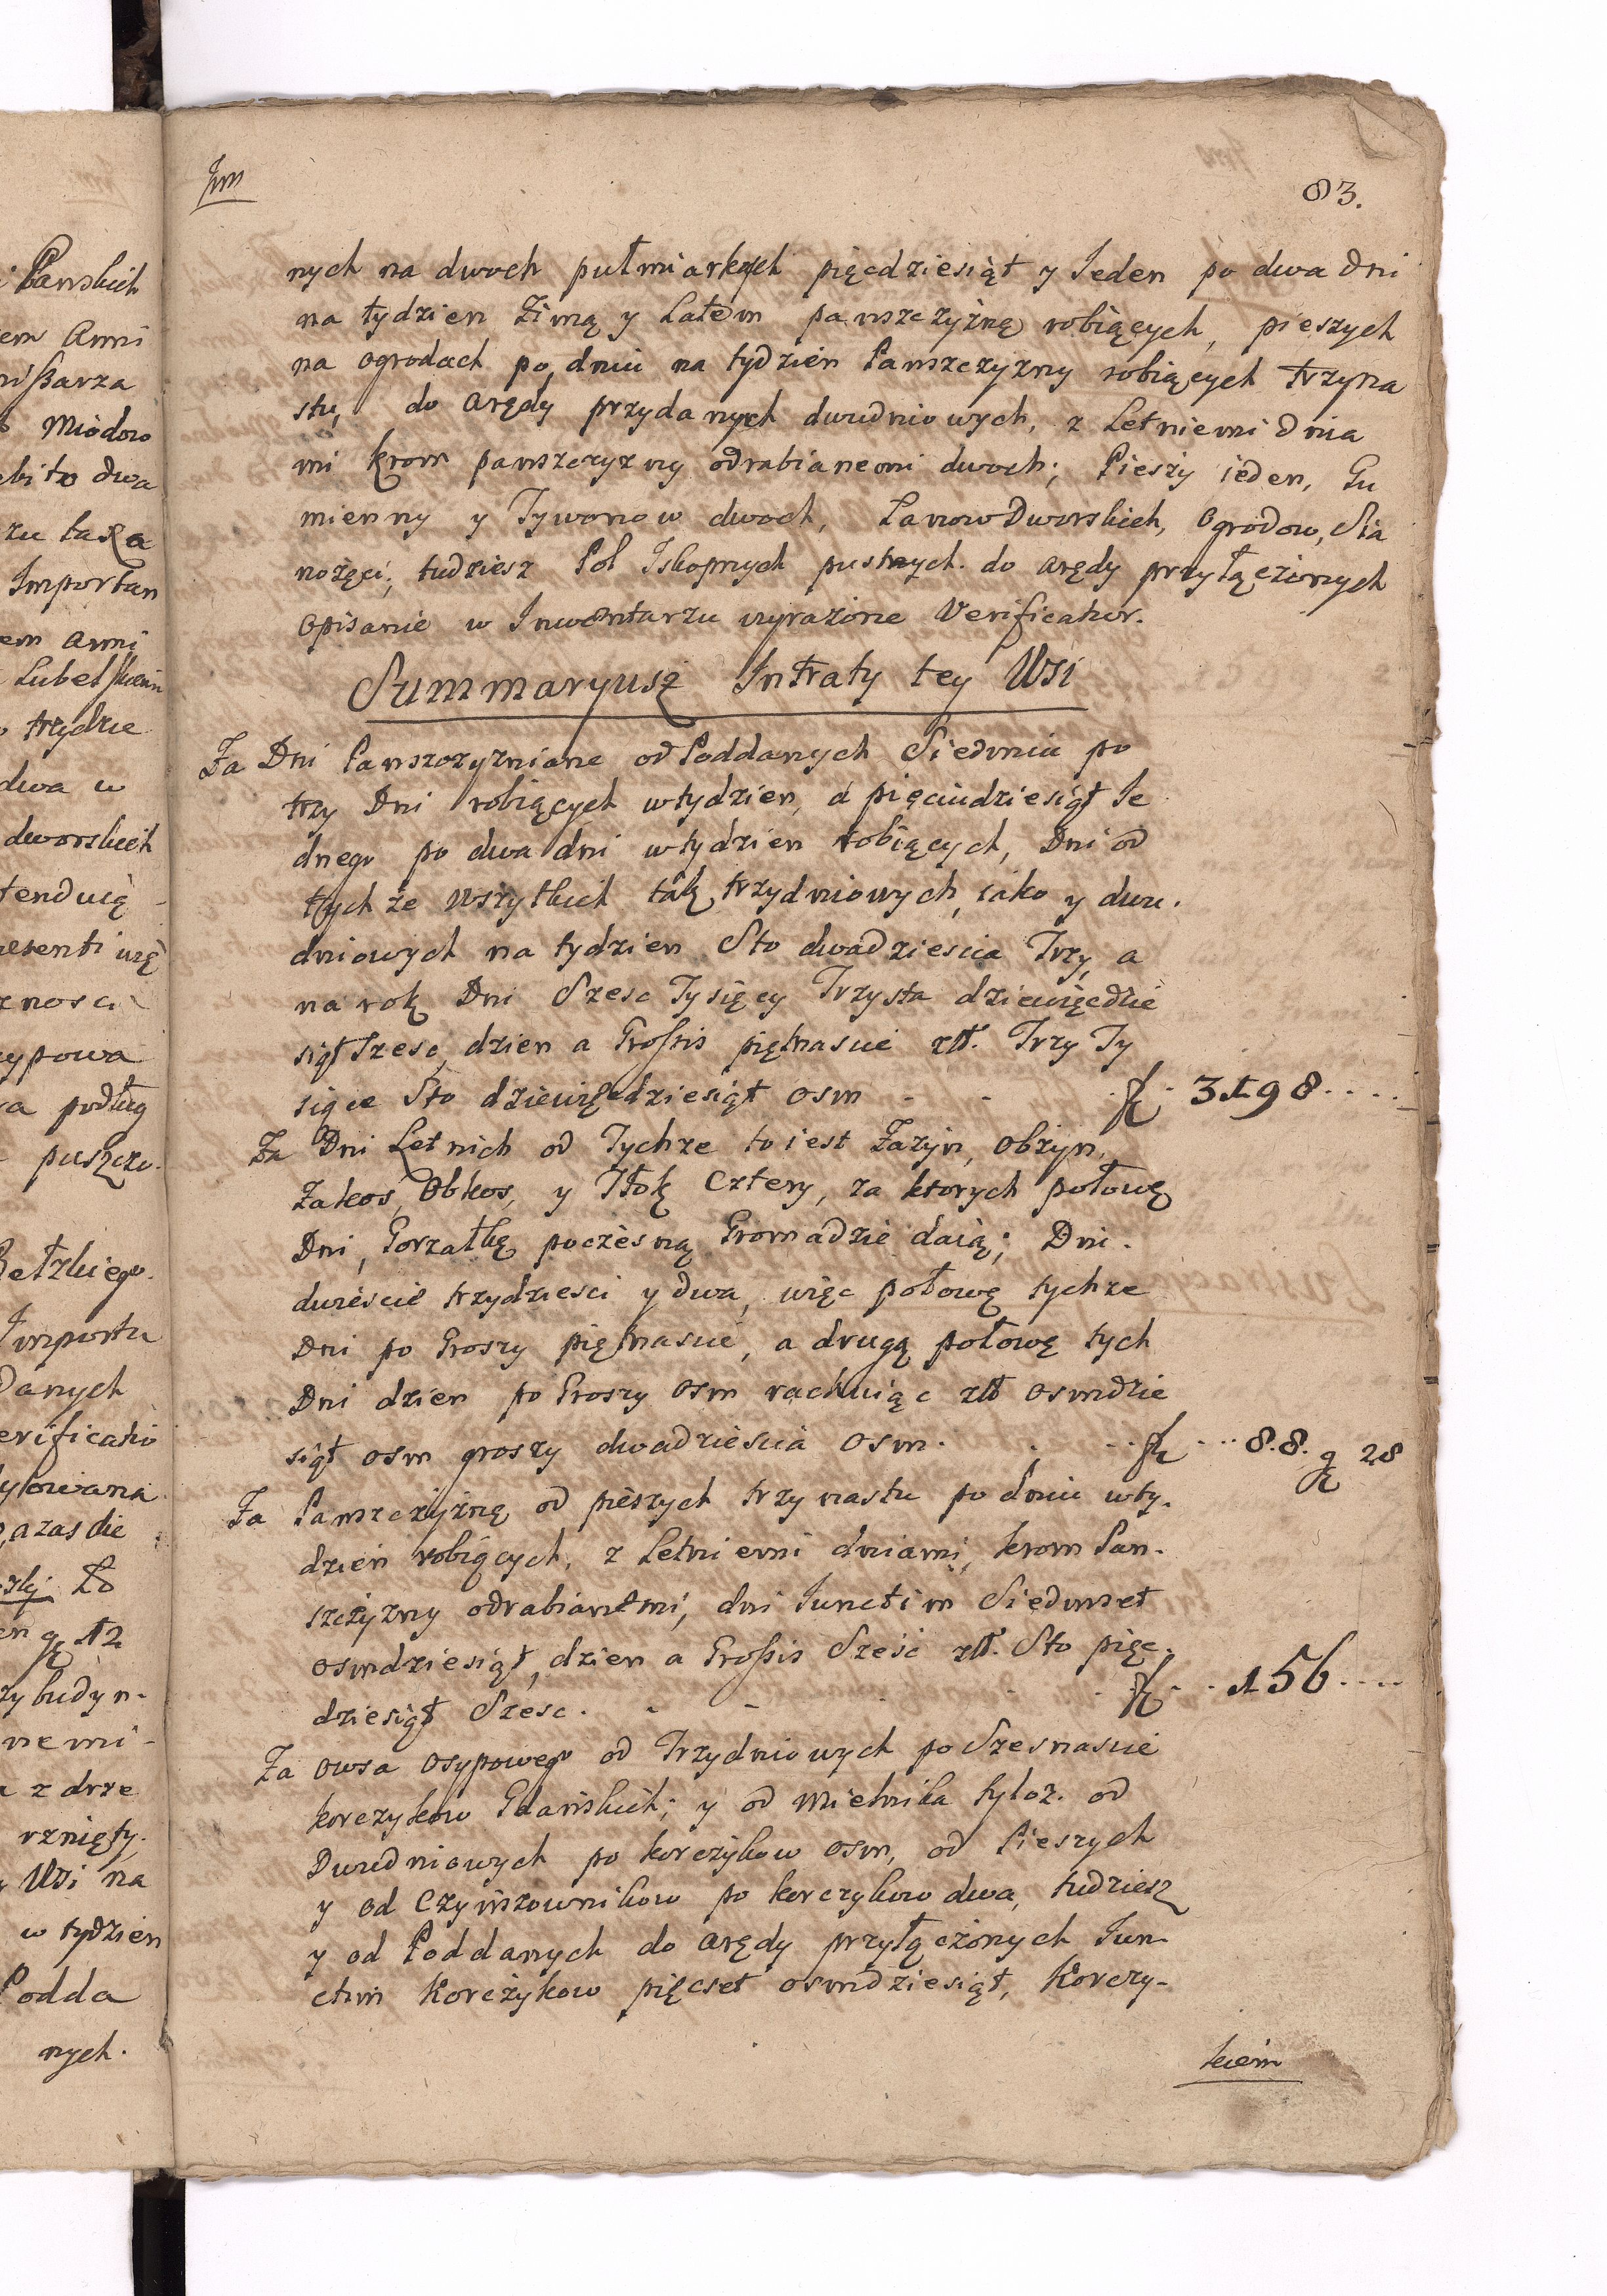 i Panskich
em Anni
missarza
Miodow
ebito dwa
zu taxa
Importan
em anni
Lubelskiem
trzydzie
dwa w
dworskich
tenduią
resenti urę
znosci
sypowa
podług
puszczo.
Bełzkiego.
Importu
Danych
erificatio
lytowana
azasdie
zły Zo
gr 12
zy budyn-
nemi-
z drze
rznięty.
Wsi na
w tydzien
Podda
nych.
Jm
83.
nych na dwoch pułmiarkach pięcdziesiąt y Ieden po dwa dni
na tydzien Zimą y Latem panszczyznę robiących, pieszych
na ogrodach po dniu na tydzien Panszczyzny robiących trzyna
stu, do arędy przydanych dwudniowych, z Letniemi dnia
mi krom panszczyzny odrabianemi dwoch; Pieszy ieden, Gu
mienny y Tywonow dwoch, Łanow Dworskich, ogrodow, Sia
nożęci, tudziesz Pol Iskopnych pustnych do arędy przyłączonych
opisanie w Inwentarzu wyrazone Verificatur.
Summaryusz Intraty tey Wsi
Za Dni Panszczyzniane od Poddanych Siedmiu po
trzy Dni robiących w tydzien, a pięciudziesiąt Ie
dnego po dwa dni w tydzien robiących, Dni od
tychże wszytkich tak trzydniowych, iako y dwu.
dniowych na tydzien Sto dwadziescia Trzy, a
na rok Dni Szesc Tysięcy Trzysta dziewięcdzie
siąt Szesc, dzien a Grossis piętnascie złł. Trzy Ty
siące Sto dziewięcdziesiąt osm - - fl. 3198....
Za Dni Letnich od Tychze to iest Zazyn, obzyn,
Zakos, Obkos, y Tłok Cztery, za ktorych połowę
Dni, Gorzałkę poczesną Gromadzie daią; Dni.
dwiescie trzydziesci y dwa, więc połowę tychze
Dni po Groszy piętnascie, a drugą połowę tych
Dni dzien po Groszy osm rachuiąc złł osmdzie
siąt osm groszy dwadziescia osm. fl ... 8.8. gr 28
Za Panszczyznę od pieszych trzynastu po dniu w ty.
dzien robiących, z Letniemi dniami, krom Pan.
szczyzny odrabianemi, dni Iunctim Siedmset
osmdziesiąt, dzien a Grossis Szesc złł. Sto pięc.
dziesiąt Szesc. - - fl. . 156....
Za owsa osypowego od Trzydniowych po Szesnascie
korczykow Gdanskich; y od Mielnika tyloz. od
Dwudniowych po korczykow osm, od Pieszych
y od Czynszownikow po korczykow dwa, tudziesz
y od Poddanych do arędy przyłączonych Iun-
ctim Korczykow pięcset osmdziesiąt, Korczy-
kiem